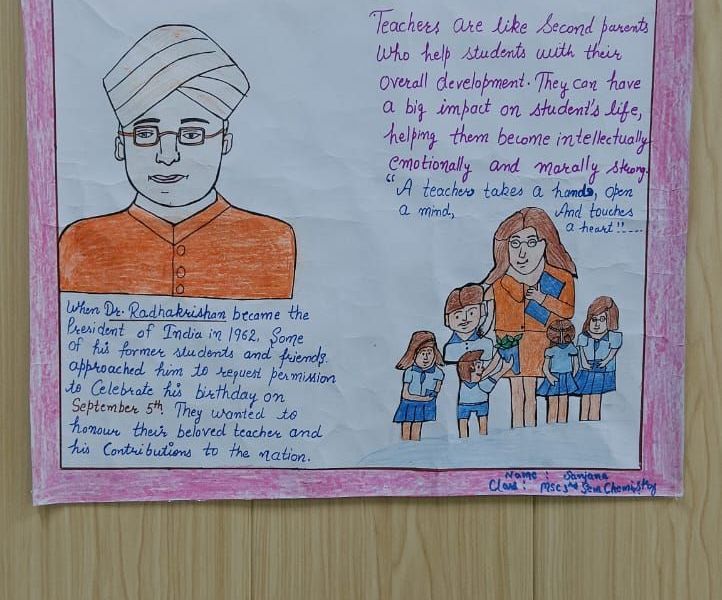 Teachers are like Second parents
Who help students with their
Overall development. They can have
a big impact on student's life,
helping them become intellectually
emotionally and morally strong.
"A teacher takes a hands, open
a mind, And touches
a heart!!....
When Dr. Radhakrishan became the
President of India in 1962. Some
of his former students and friends
approached him to request permission
to Celebrate his birthday on
September 5th. They wanted to
honour their beloved teacher and
his Contributions to the nation.
Name : Sanjana
Class : MSc 3rd Sem Chemistry